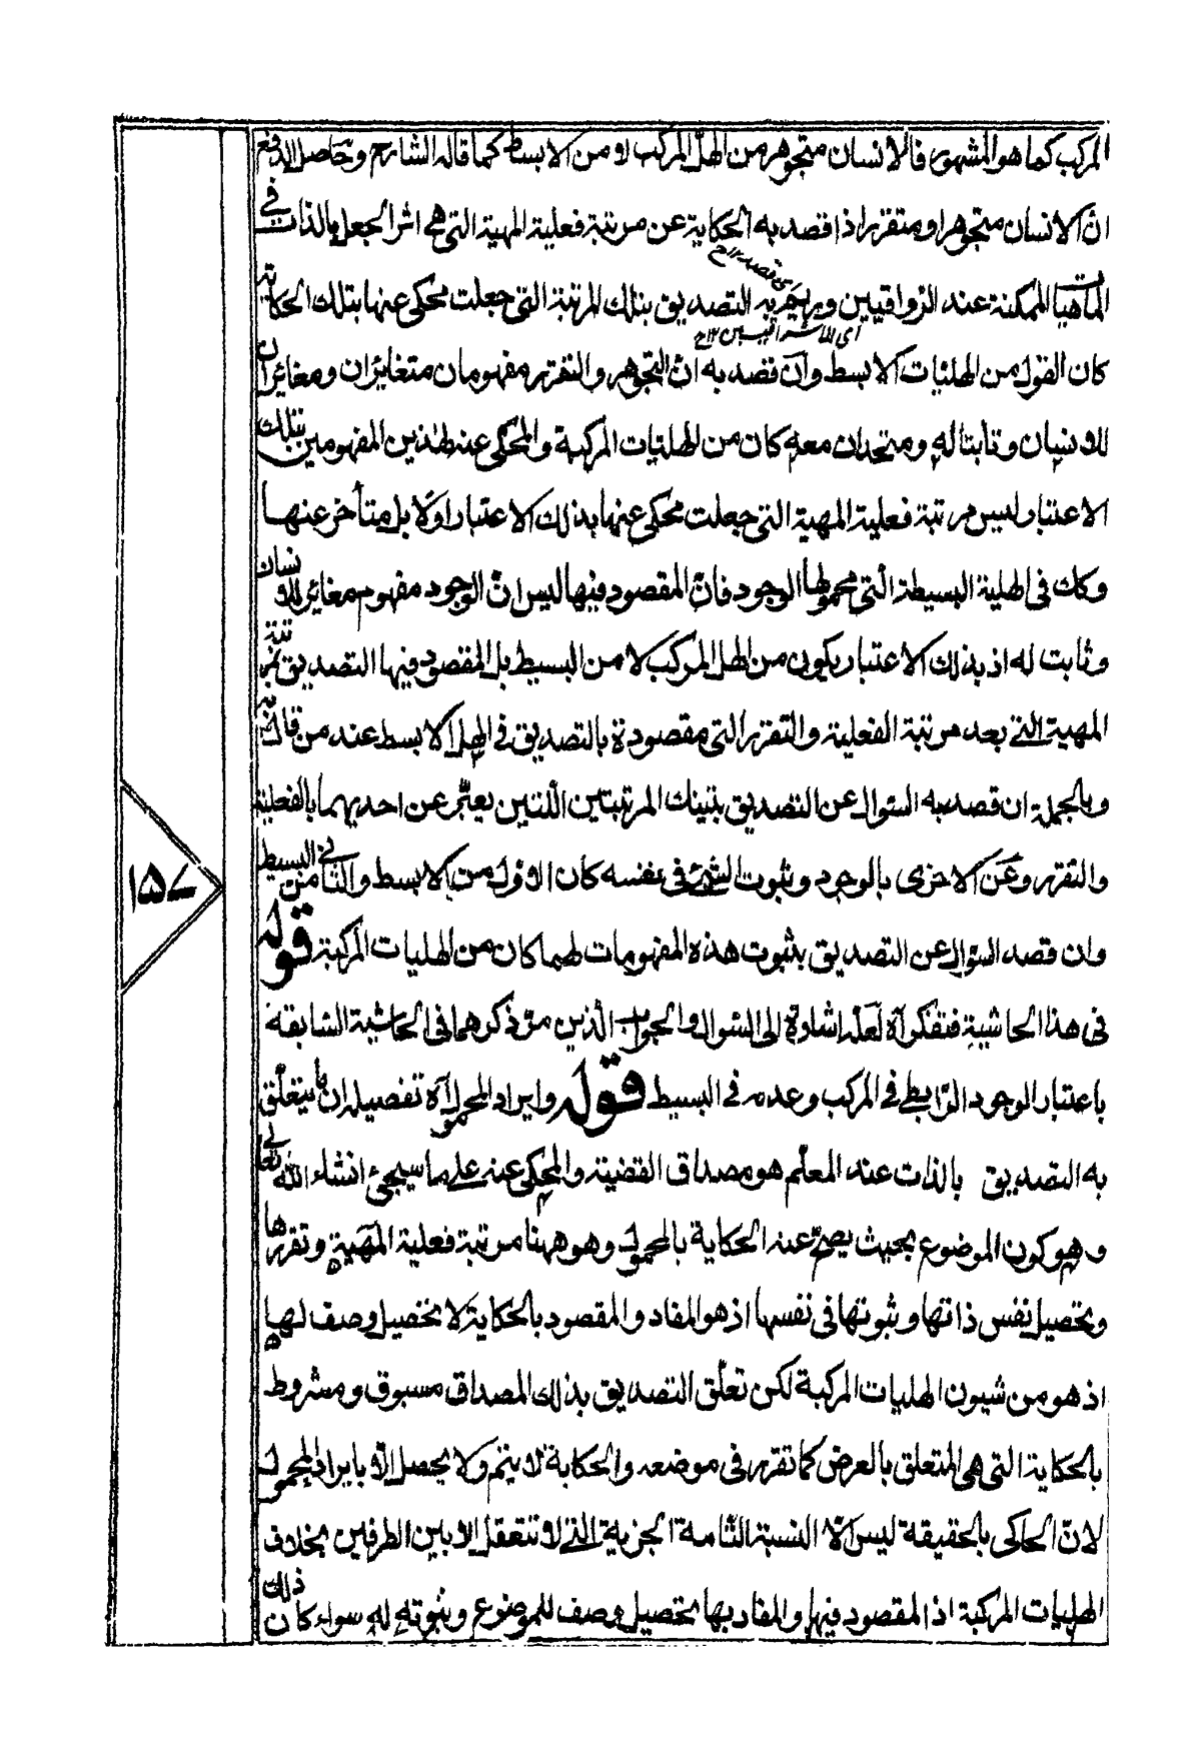 المركب كما هو المشهور فالانسان متجوهر من الهل المركب لا من الابسط كما قاله الشارح وحاصل الدفع
ان الانسان متجوهر او متقرر اذا قصد به الحكاية عن مرتبة فعلية المهية التى هى اثر الجعل بالذات فى
الماهيات الممكنة عند الرواقيين ويراد به التصديق بتلك المرتبة التى جعلت محكى عنها بتلك الحكاية
اى الاشراقيين ١٢ ح
كان القول من الهليات الابسط وان قصد به ان التجوهر والتقرر مفهومان متغائران ومغائران
للانسان وثابتا له ومتحدان معه كان من الهليات المركبة والمحكى عنه لهذين المفهومين بتلك
الاعتبار ليس مرتبة فعلية المهية التى جعلت محكى عنها بذلك الاعتبار اولا بل متأخر عنها
وكك فى الهلية البسيطة التى محمولها الوجود فان المقصود فيها ليس ان الوجود مفهوم مغائر للانسان
وثابت له اذ بذلك الاعتبار يكون من الهل المركب لا من البسيط بل المقصود فيها التصديق بمرتبة
المهية التى بعد مرتبة الفعلية والتقرر التى مقصودة بالتصديق فى الهل الابسط عند من قال به
وبالجملة ان قصد به السؤال عن التصديق بتينك المرتبتين اللتين يعبر عن احديهما بالفعلية
والتقرر وعن الاخرى بالوجود وثبوت الشئ فى نفسه كان الاول من الابسط والثانى من البسيط
وان قصد السؤال عن التصديق بثبوت هذه المفهومات لهما كان من الهليات المركبة قوله
فى هذا الحاشية فتفكر آه لعله اشارة الى السئوال والجواب الذين مر ذكرهما فى الحاشية السابقة
باعتبار الوجود الرابطى فى المركب وعدمه فى البسيط قوله وايراد المحمول آه تفصيله ان ما يتعلق
به التصديق بالذات عند المعلم هو مصداق القضية والمحكى عنه على ما سيجئ انشاء الله تعالى
وهو كون الموضوع بحيث يصح عنه الحكاية بالمحمول وهو ههنا مرتبة فعلية المهية وتقررها
وتحصيل نفس ذاتها وثبوتها فى نفسها اذ هو المفاد والمقصود بالحكاية لا تحصيل وصف لها
اذ هو من شيون الهليات المركبة لكن تعلق التصديق بذلك المصداق مسبوق ومشروط
بالحكاية التى هى المتعلق بالعرض كما تقرر فى موضعه والحكاية لا يتم ولا يحصل الا بايراد المحمول
لان الحاكى بالحقيقة ليس الا النسبة التامة الجزية التى لا تتعقل الا بين الطرفين بخلاف
الهليات المركبة اذ المقصود فيها والمفاد بها تحصيل وصف للموضوع وثبوته له سواء كان ذلك
١٥٧